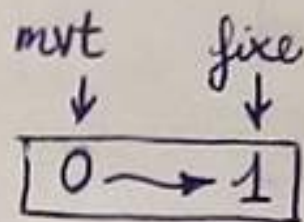 mvt fixe
↓ ↓
0 → 1